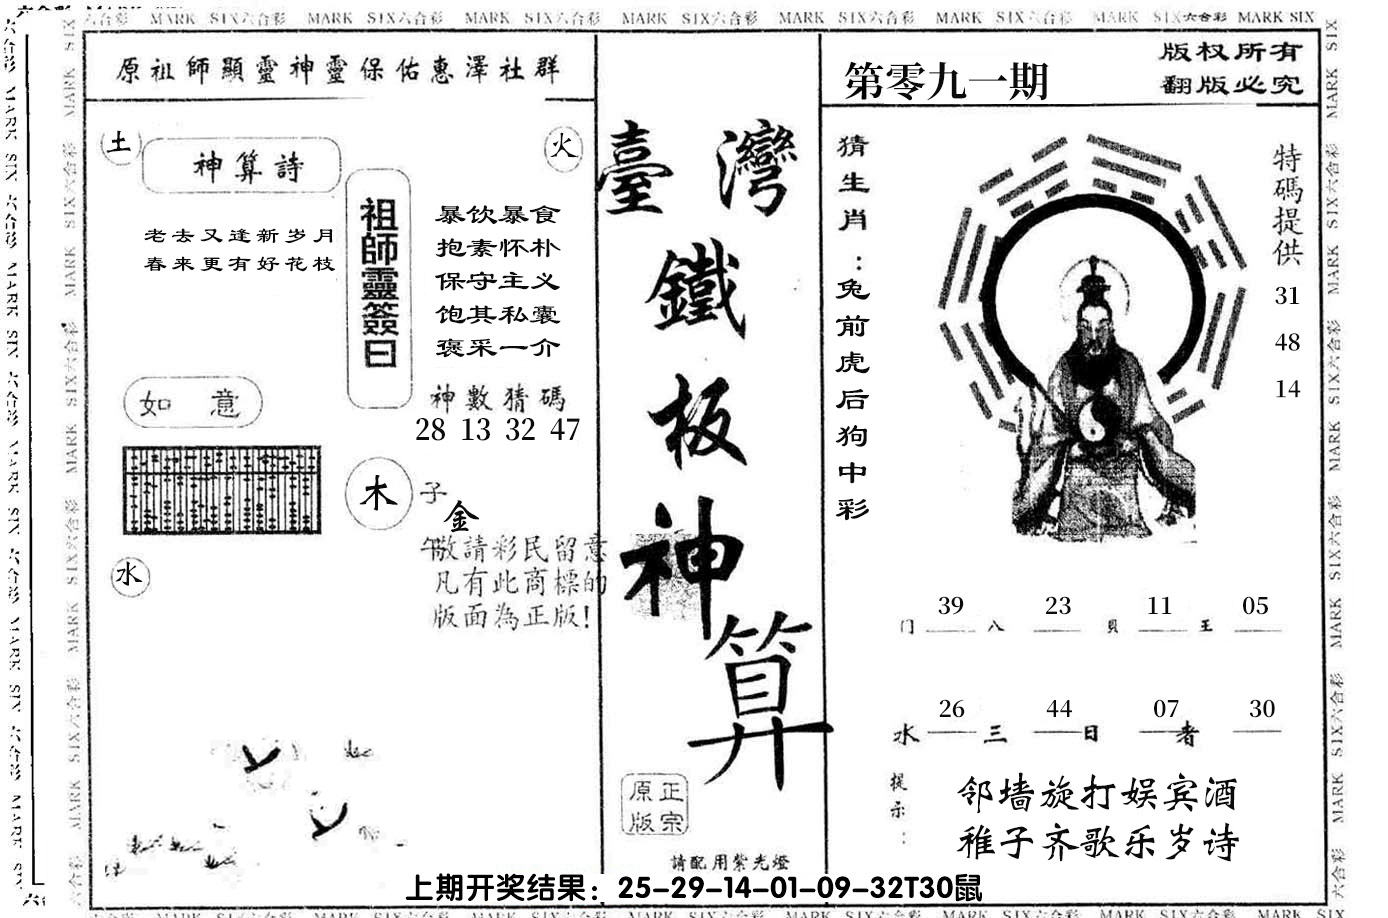 MARK SIX六合彩 MARK SIX六合彩 MARK SIX六合彩 MARK SIX六合彩 MARK SIX六合彩 MARK SIX六合彩 MARK SIX六合彩 MARK SIX
原祖師顯靈神靈保佑惠澤社群
土
神算詩
火
老去又逢新岁月
春来更有好花枝
祖師靈簽曰
暴饮暴食
抱素怀朴
保守主义
饱其私囊
褒采一介
神數猜碼
28 13 32 47
如意
木
子
金
午敬請彩民留意
凡有此商標的
版面為正版!
水
臺灣
鐵板神算
正宗
原版
請配用紫光燈
第零九一期
版权所有
翻版必究
猜生肖:兔前虎后狗中彩
特碼提供
31
48
14
39 23 11 05
门 八 貝 王
26 44 07 30
水 三 日 者
提示:
邻墙旋打娱宾酒
稚子齐歌乐岁诗
上期开奖结果：25-29-14-01-09-32T30鼠